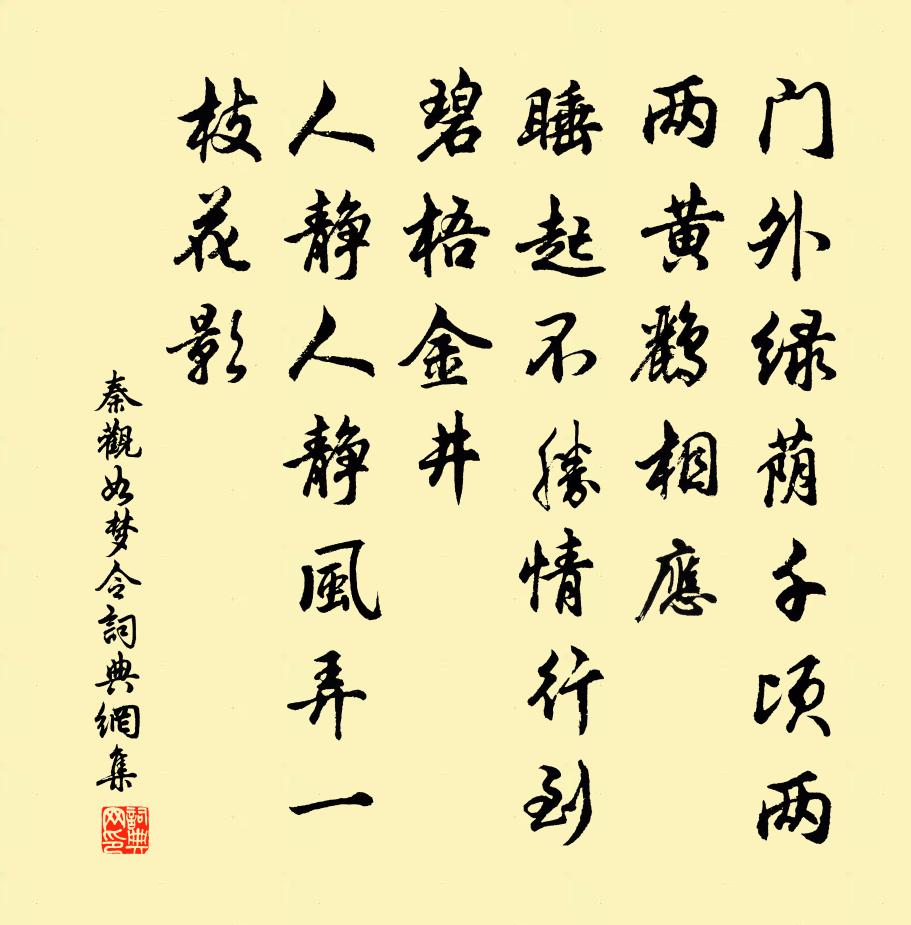 门外绿荫千顷两
两黄鸝相應
睡起不勝情行到
碧梧金井
人静人静風弄一
枝花影
秦觀如梦令詞典網集
詞典
网印